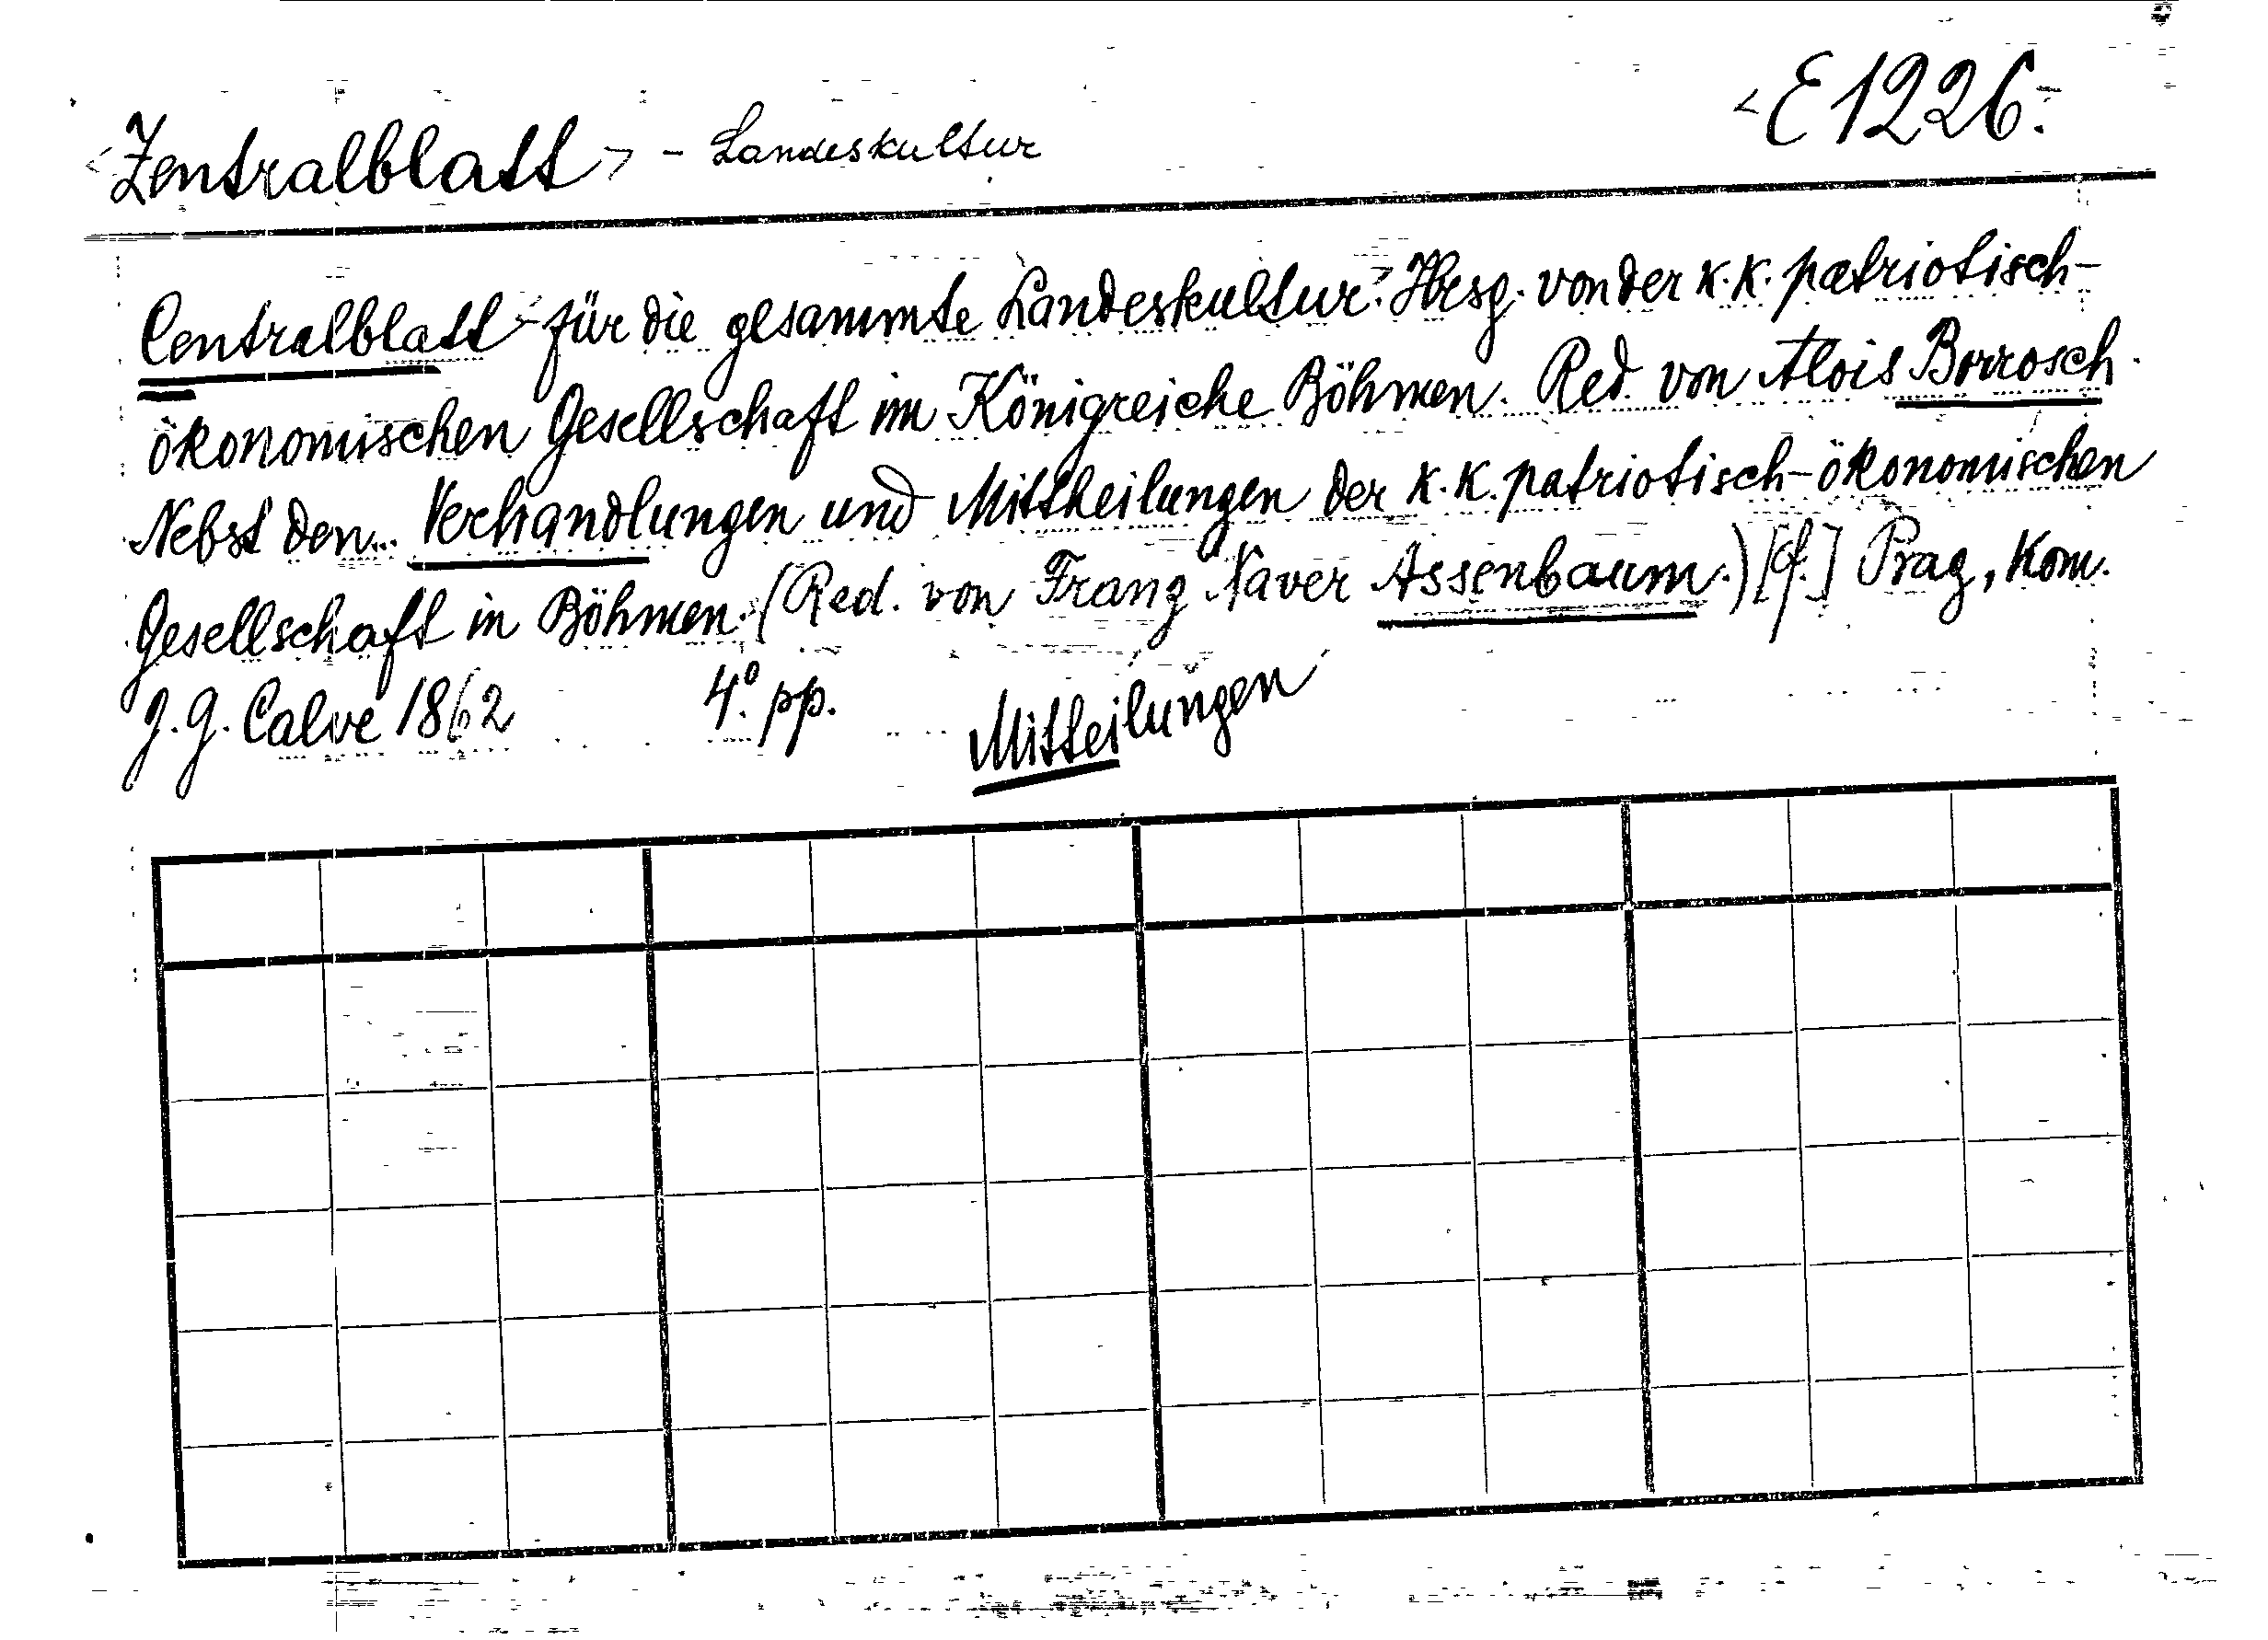 <Zentralblatt> - Landeskultur
<E 1226.>
Centralblatt für die gesammte Landeskultur. Hrsg. von der k. k. patriotisch-
ökonomischen Gesellschaft im Königreiche Böhmen. Red. von Alois Borrosch.
Nebst den... Verhandlungen und Mittheilungen der k. k. patriotisch-ökonomischen
Gesellschaft in Böhmen. (Red. von Franz Xaver Assenbaum.) [f.] Prag, Kom.
J. G. Calve 1862 4° pp.
Mitteilungen